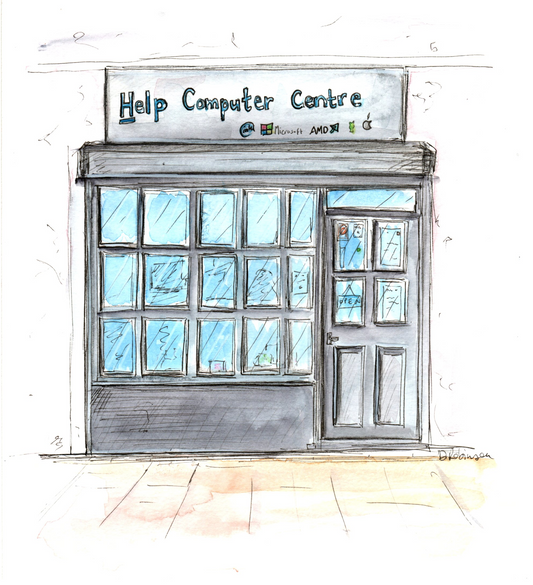 Help Computer Centre
Microsoft AMD
OPEN
D Robinson